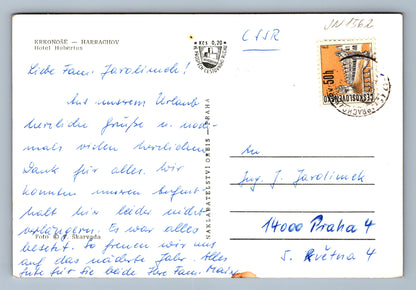 KRKONOŠE — HARRACHOV
Hotel Hubertus
Kčs 0,70
ČSSR
50h
ČESKOSLOVENSKO
Liebe Fam. Jarolimek!
Aus unserem Urlaub
herzliche Grüße u. noch-
mals vielen herzlichen
Dank für alles. Wir
konnten unseren Aufent-
halt hier leider nicht
verlängern. Es war alles
besetzt. So freuen wir uns
auf das nächste Jahr. Alles
Gute für Sie beide Ihre Fam.
NAKLADATELSTVÍ ORBIS - PRAHA
Foto © Skarvada
An
Ing. J. Jarolimek
14000 Praha 4
5. Května 4